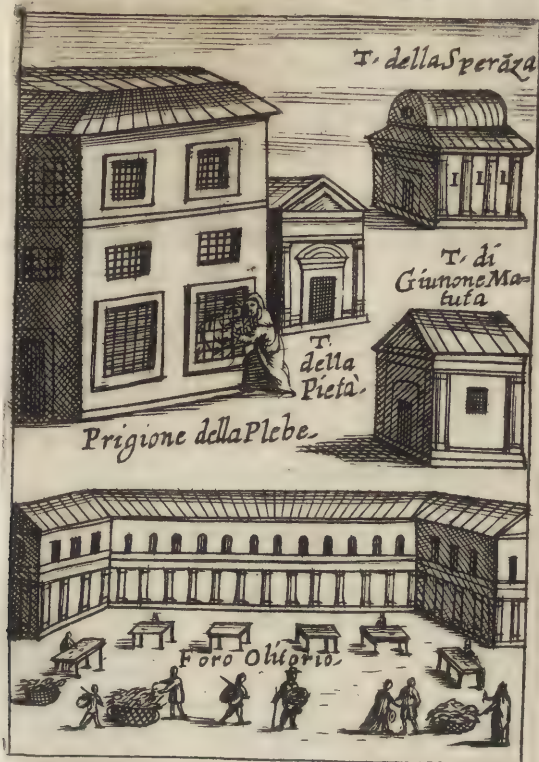 T. della Sperãza
T. di
Giunone Ma=
tuta
T.
della
Pietà.
Prigione della Plebe.
Foro Olitorio.